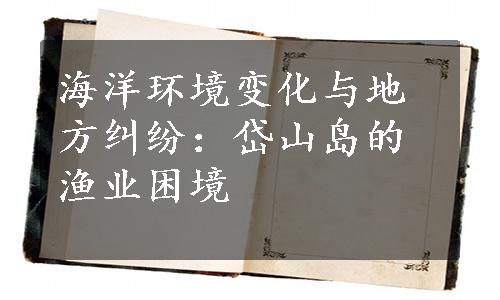 海洋环境变化与地
方纠纷：岱山岛的
渔业困境